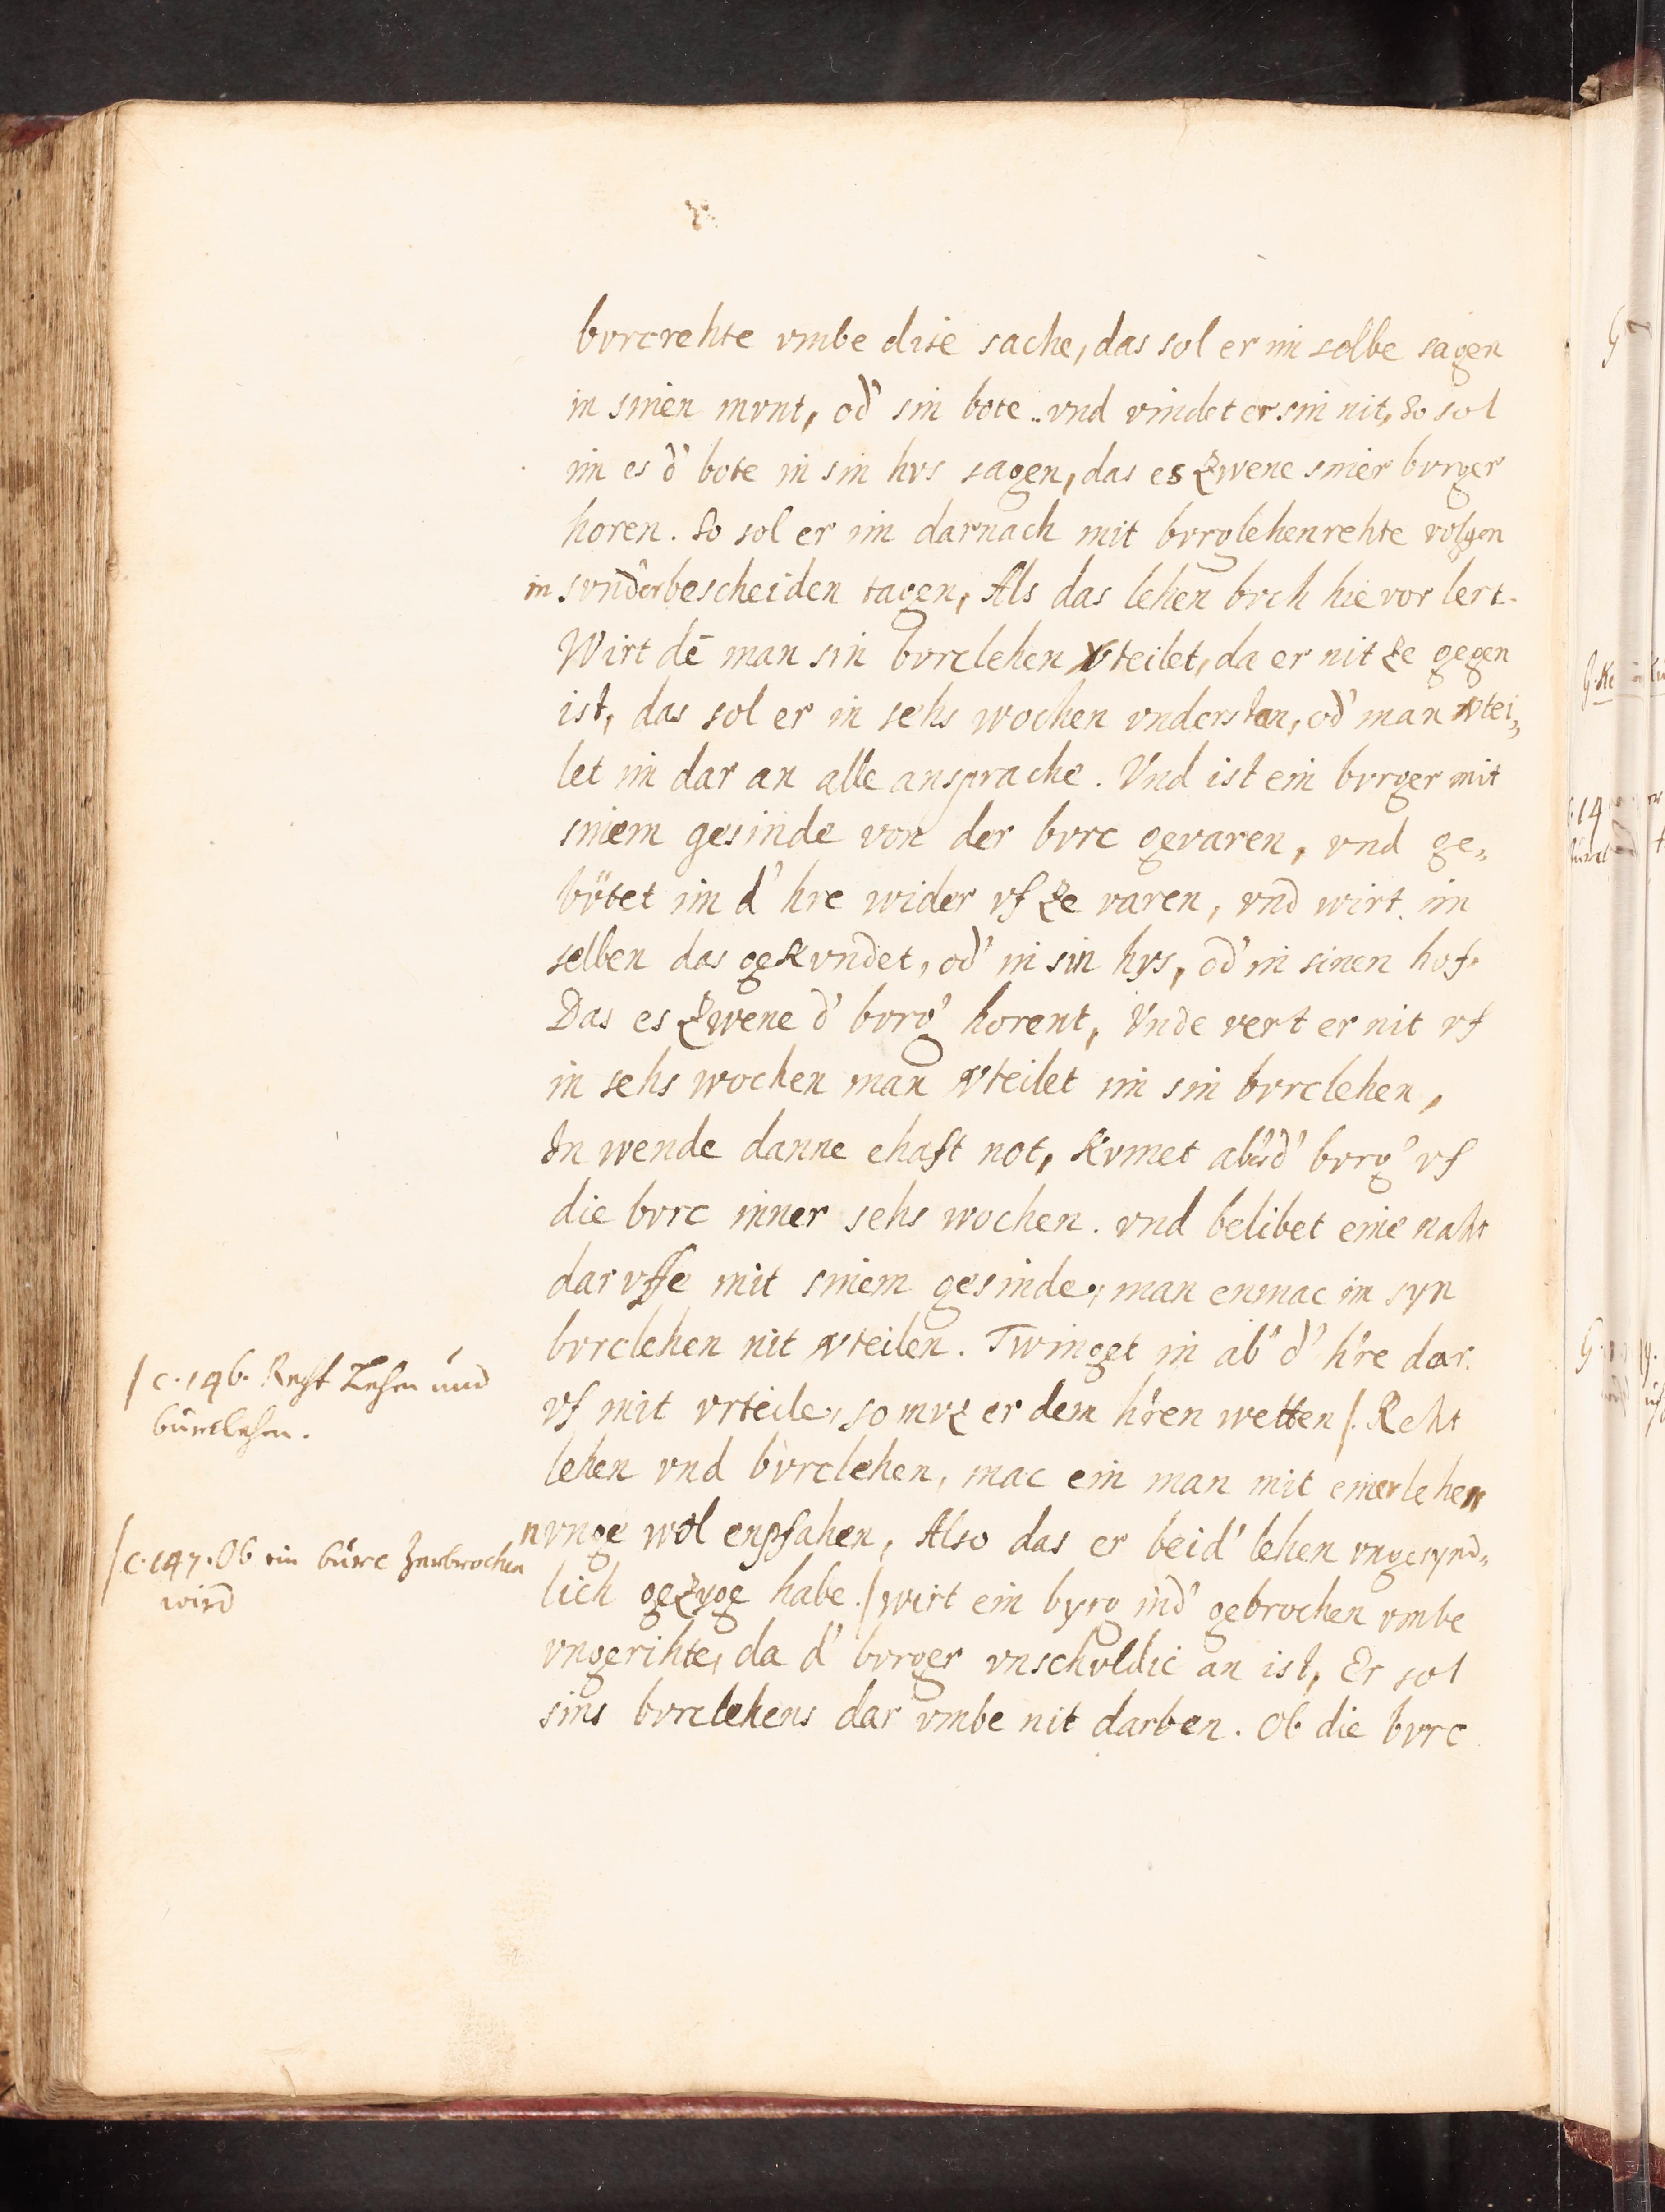 bvrcrehte vmbe dise sache, das sol er im selbe sagen
in sinen mvnt, od' sin bote .. vnd vindet er sin nit, So sol
im es d' bote in sin hvs sagen, das es zwene siner bvrger
horen. So sol er im darnach mit bvrglehenrehte volgen
in svnderbescheiden tagen, Als das lehen bvch hie vor lert.
Wirt dē man sin bvrclehen vteilet, da er nit ze gegen
ist, das sol er in sehs wochen vnderstan, od' man vtei„
let im dar an alle ansprache. Vnd ist ein bvrger mit
sinem gesinde von der bvrc gevaren, vnd ge„
bvtet im d' hre wider vf ze varen, vnd wirt im
selben das gekvndet, od' in sin hvs, od' in sinen hof.
Das es zwene d' bvrg' horent, Vnde vert er nit vf
in sehs wochen man vteilet im sin bvrclehen,
In wende danne ehaft not, Kvmet ab' d' bvrg' vf
die bvrc inner sehs wochen. vnd belibet eine naht
dar vffe mit sinem gesinde, man enmac im syn
bvrclehen nit vteilen. Twinget in ab' d' h're dar
vf mit vrteile, so mvz er dem h'ren wetten /. Reht
/ c. 146. Reht Lehen und
bürclehen.
lehen vnd bvrclehen, mac ein man mit einer lehen
nvnge wol enpfahen, Also das er beid' lehen vngesynd„
/ c. 147. Ob ein bürc zerbrochen
wird
lich gezyge habe. / wirt ein byrg ind' gebrochen vmbe
vngerihte, da d' bvrger vnschvldic an ist, Er sol
sins bvrclehens dar vmbe nit darben. Ob die bvrc